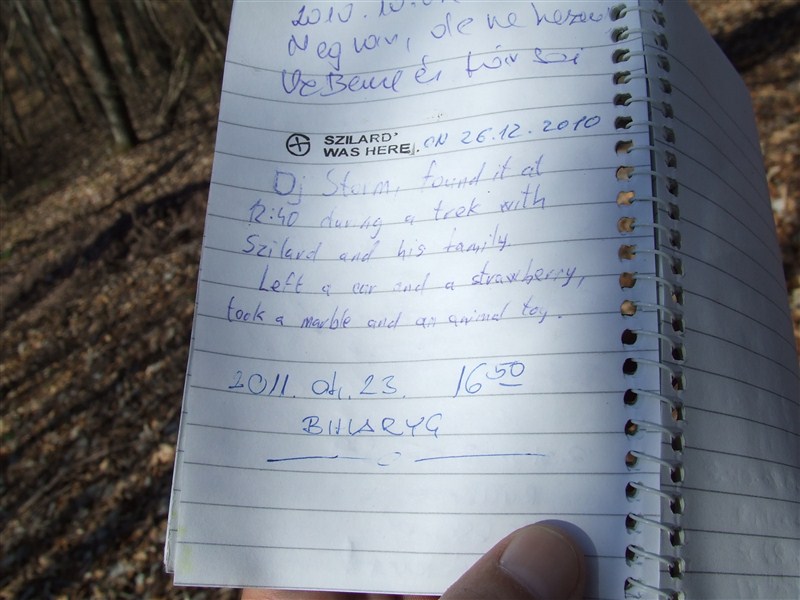 2010. 10.
Megvan, de ne
és
SZILARD'
WAS HERE. ON 26.12.2010
Dj Storm, found it at
12:40 during a trek with
Szilard and his family.
Left a car and a strawberry,
took a marble and an animal toy.
2011. 01. 23. 16 50
BIHARYG